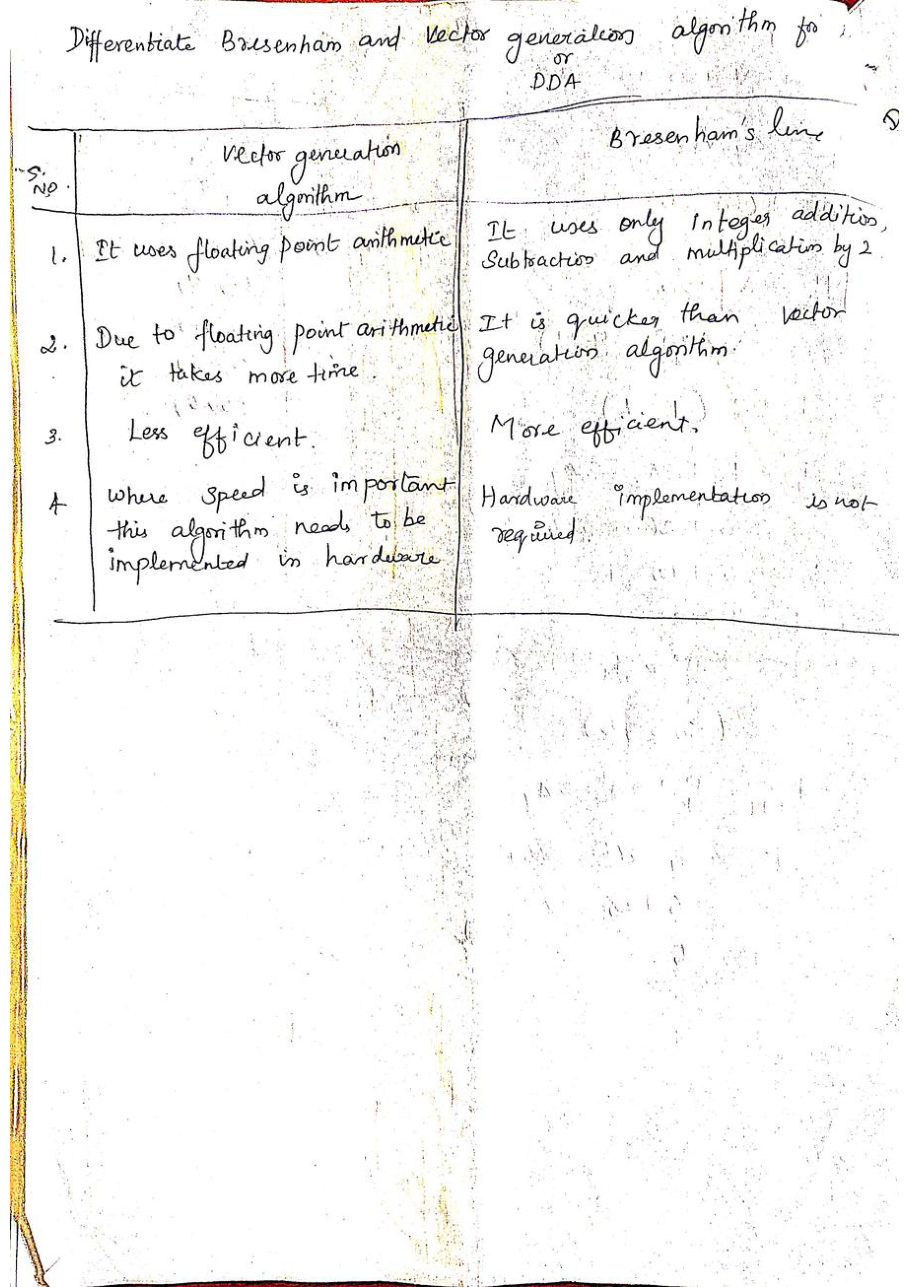 Differentiate Bresenham and Vector generation algorithm for
or
DDA
S.
NO.
Vector generation
algorithm
Bresenham's line
1.
It uses floating point arithmetic
It uses only integer addition,
Subtraction and multiplication by 2
2.
Due to floating point arithmetic
it takes more time.
It is quicker than vector
generation algorithm.
3.
Less efficient.
More efficient.
4
where speed is important
this algorithm needs to be
implemented in hardware
Hardware implementation is not
required.